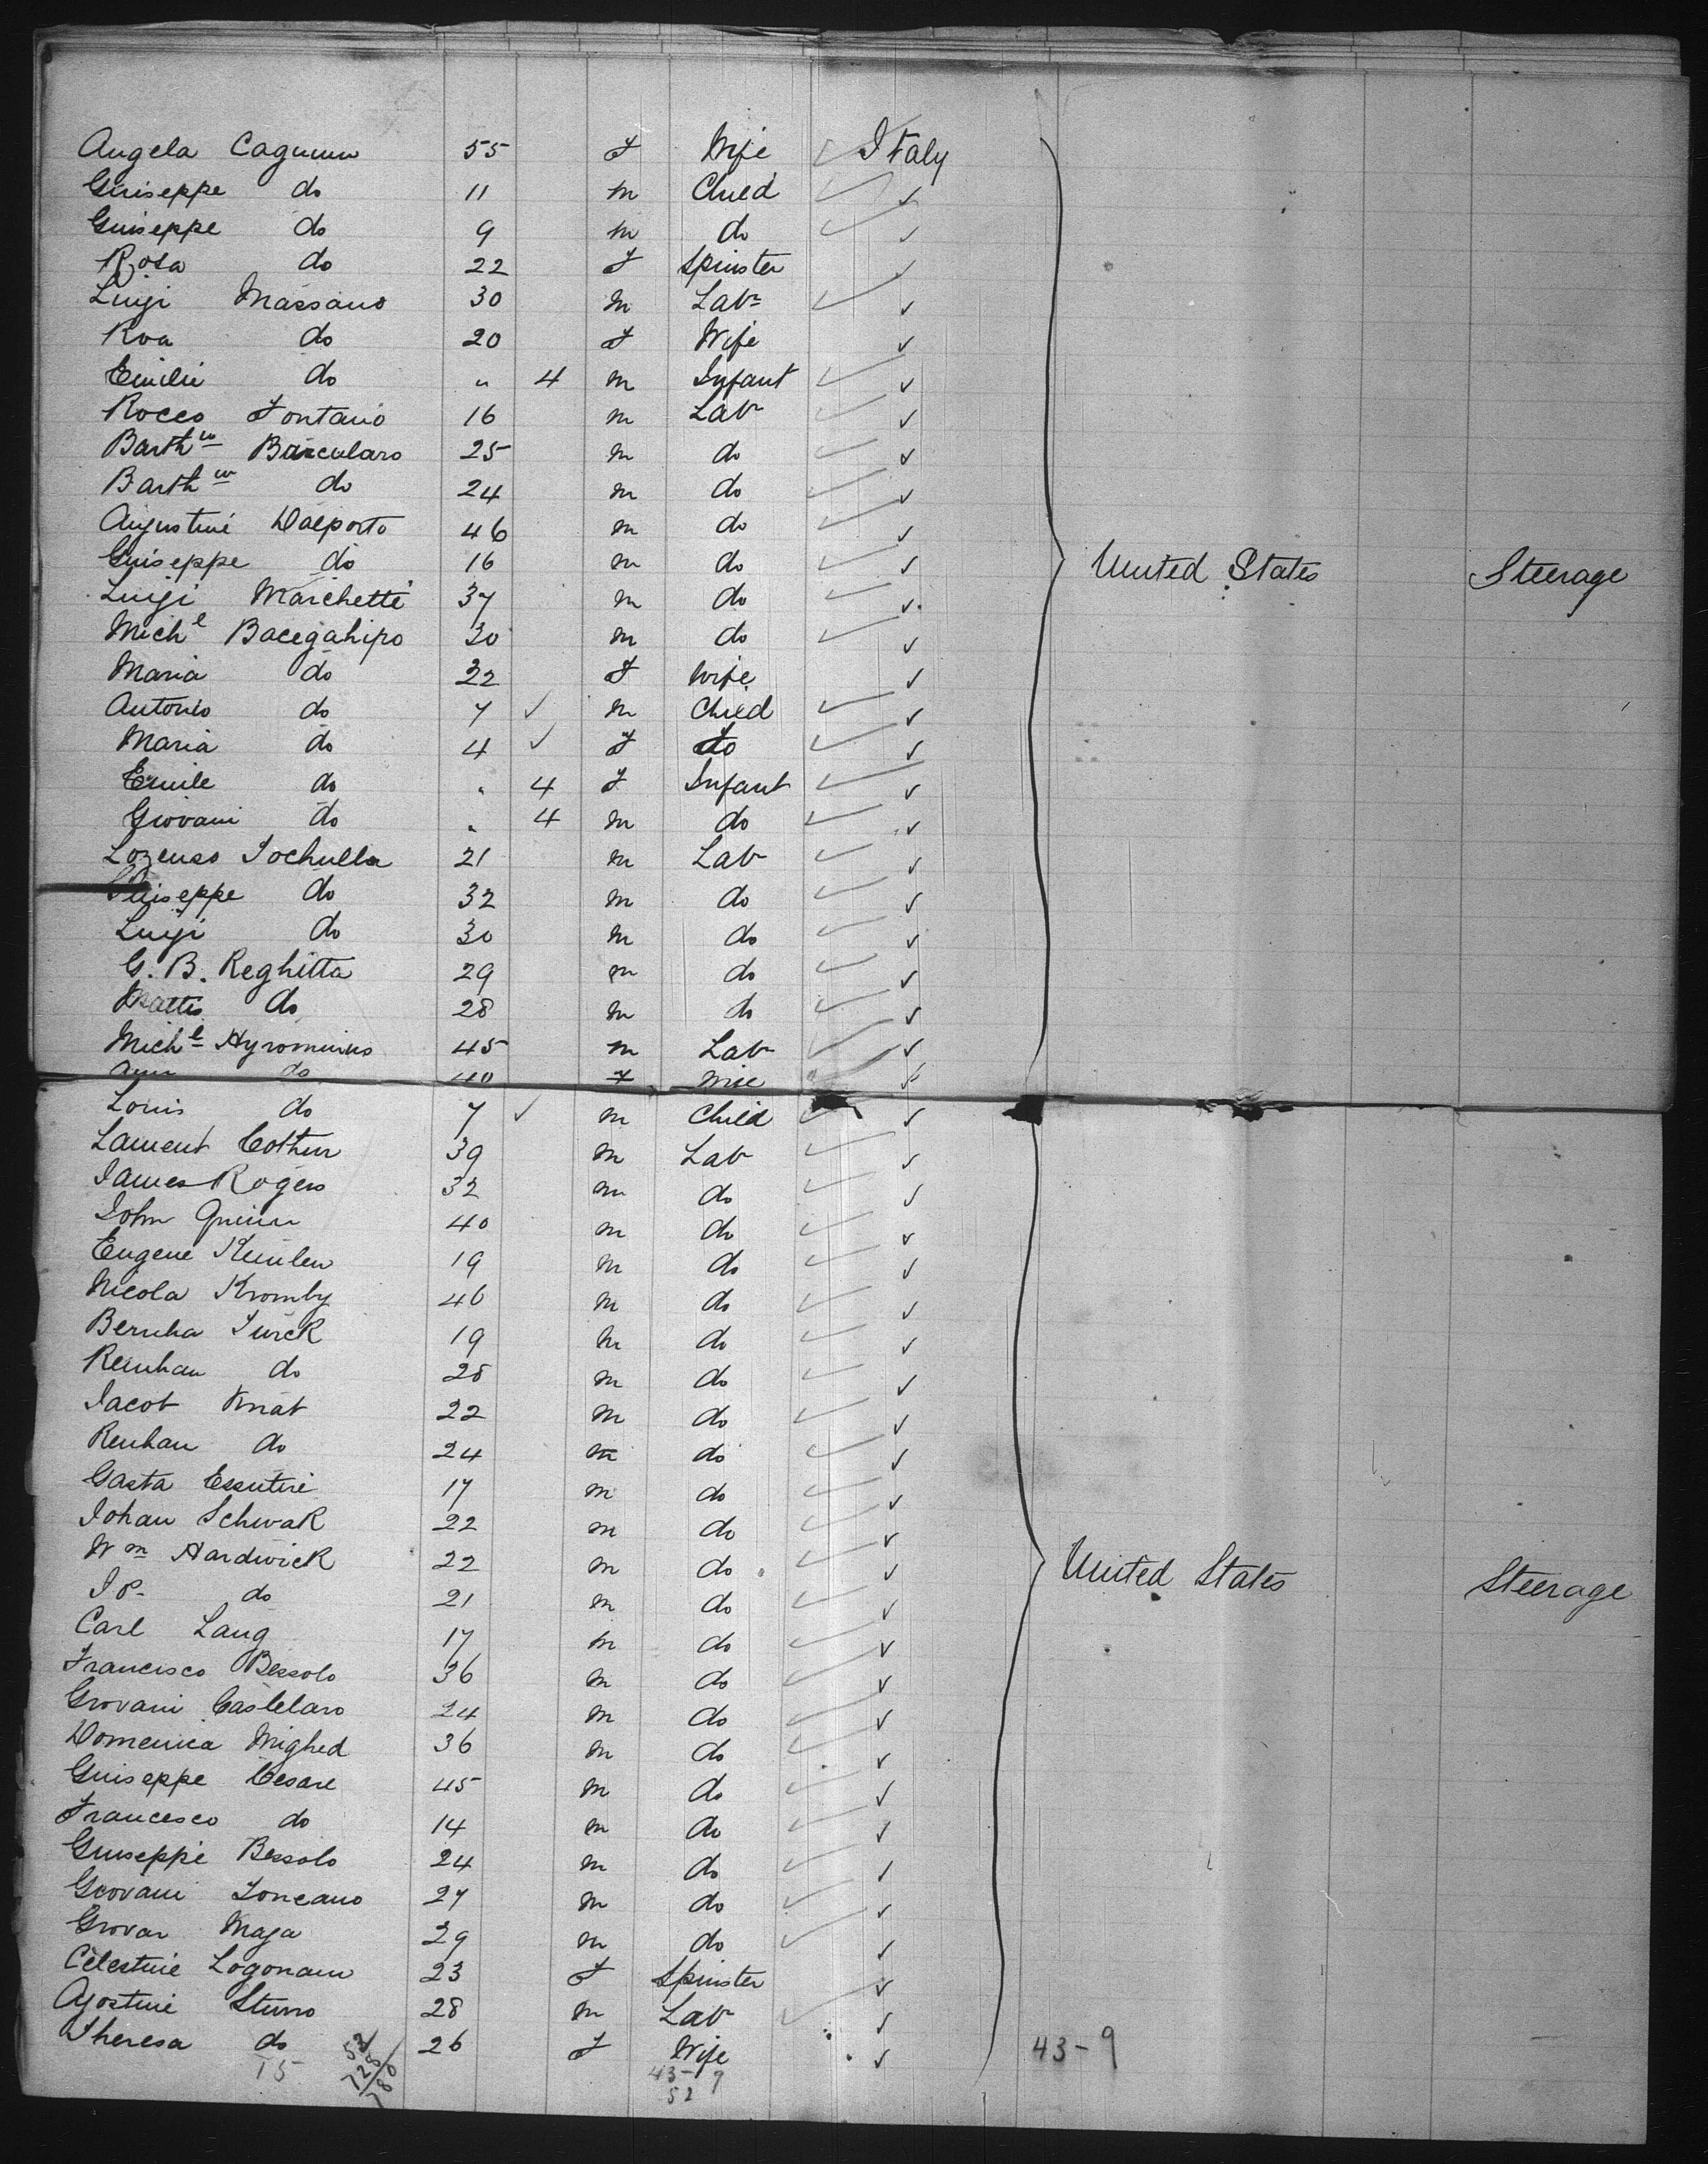 Angela Cagnunn 55 F Wife Italy
Giuseppe do 11 m Child
Guiseppe do 9 m do
Rosa do 22 F Spinster
Luigi Massano 30 m Labr
Roa do 20 F Wife
Emilii do " 4 m Infant
Rocco Fontano 16 m Lab
Barthw Barcularo 25 m do
Barthw do 24 m do
Augustini Dalporto 46 m do
Guiseppe do 16 m do
Luigi Marchetti 37 m do
Michl Bacegahipo 30 m do
Maria do 22 F Wife
Antonio do 7 m Child
Maria do 4 F do
Emile do " 4 F Infant
Giovani do " 4 m do
Lorenzo Tochulla 21 m Lab
Guiseppe do 32 m do
Luigi do 30 m do
G. B. Reghitta 29 m do
Mattis do 28 m do
Michl Hyrominus 45 m Lab
Ann do 40 F Wife
United States Steerage
Louis do 7 m Child
Lament Cothur 39 m Lab
James Rogers 32 m do
John Quinn 40 m do
Eugene Keinlen 19 m do
Nicola Kromby 40 m do
Bernha Turck 19 m do
Reinhau do 28 m do
Jacob Knat 22 m do
Renhau do 24 m do
Gasta Essutini 17 m do
Johan Schwak 22 m do
Wm Hardwick 22 m do
do 21 m do
Carl Lang 17 m do
Francisco Bessolo 36 m do
Giovani Castelaro 24 m do
Domenica Mighed 36 m do
Guiseppe Cesare 45 m do
Francesco do 14 m do
Guiseppi Bessolo 24 m do
Giovani Toncano 27 m do
Giovan Maja 29 m do
Celestini Logonam 23 F Spinster
Agostini Sturro 28 m Lab
Theresa do 26 F Wife
United States Steerage
43-9
15
52
728
780
43-9
52